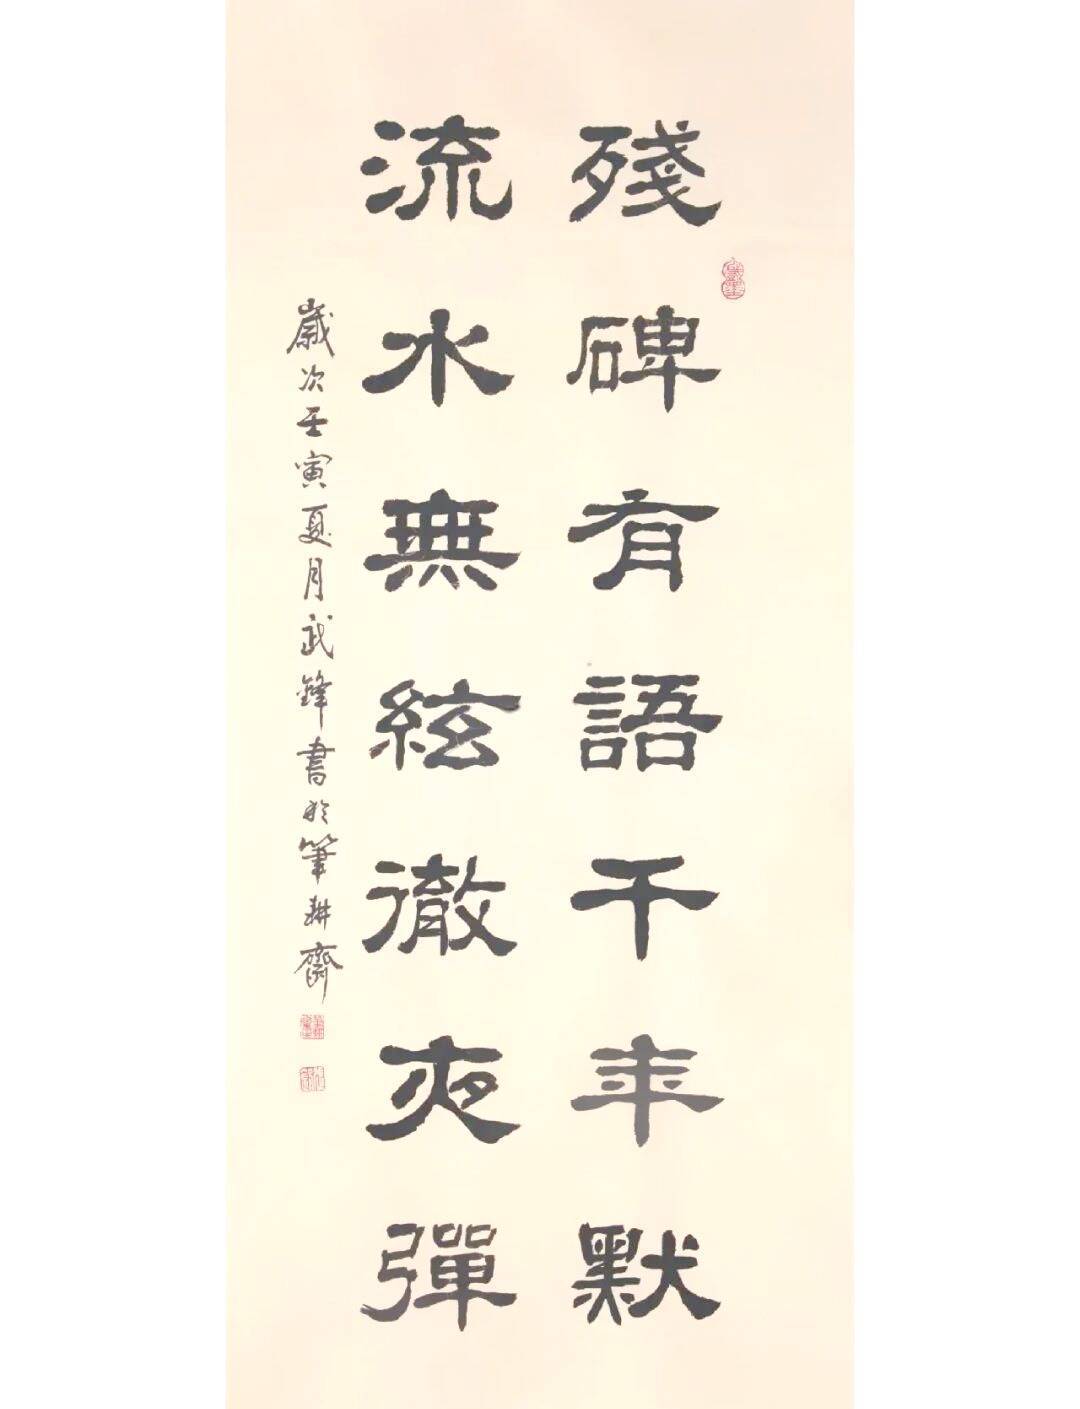 殘碑有語千年默
流水無絃徹夜彈
歲次壬寅夏月武鋒書於筆耕齋